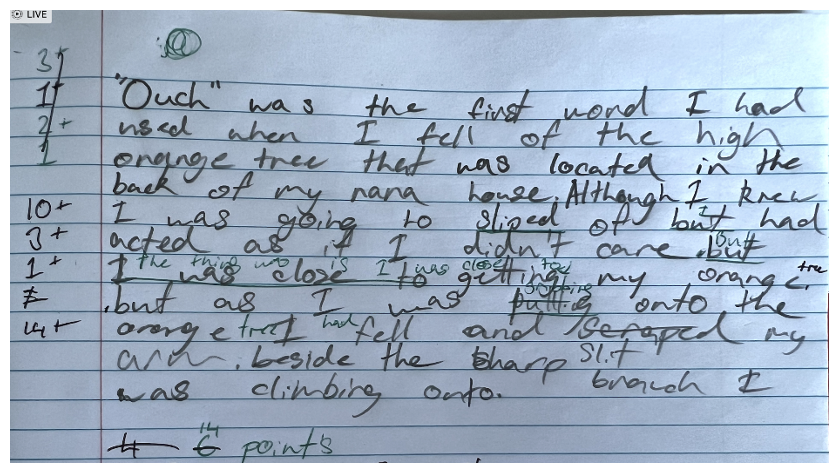 LIVE
3+
1+ "Ouch" was the first word I had
2+ used when I fell of the high
1 orange tree that was located in the
back of my nana house. Although I knew
10+ I was going to sliped of but I had
3+ acted as if I didn't care. but but
the thing was is I was close too
1+ I was close to getting my orange. tree
.but as I was putting onto the
14+ orange tree I had fell and scraped my
arm. beside the sharp slit
was climbing onto. branch I
4 6 14 points